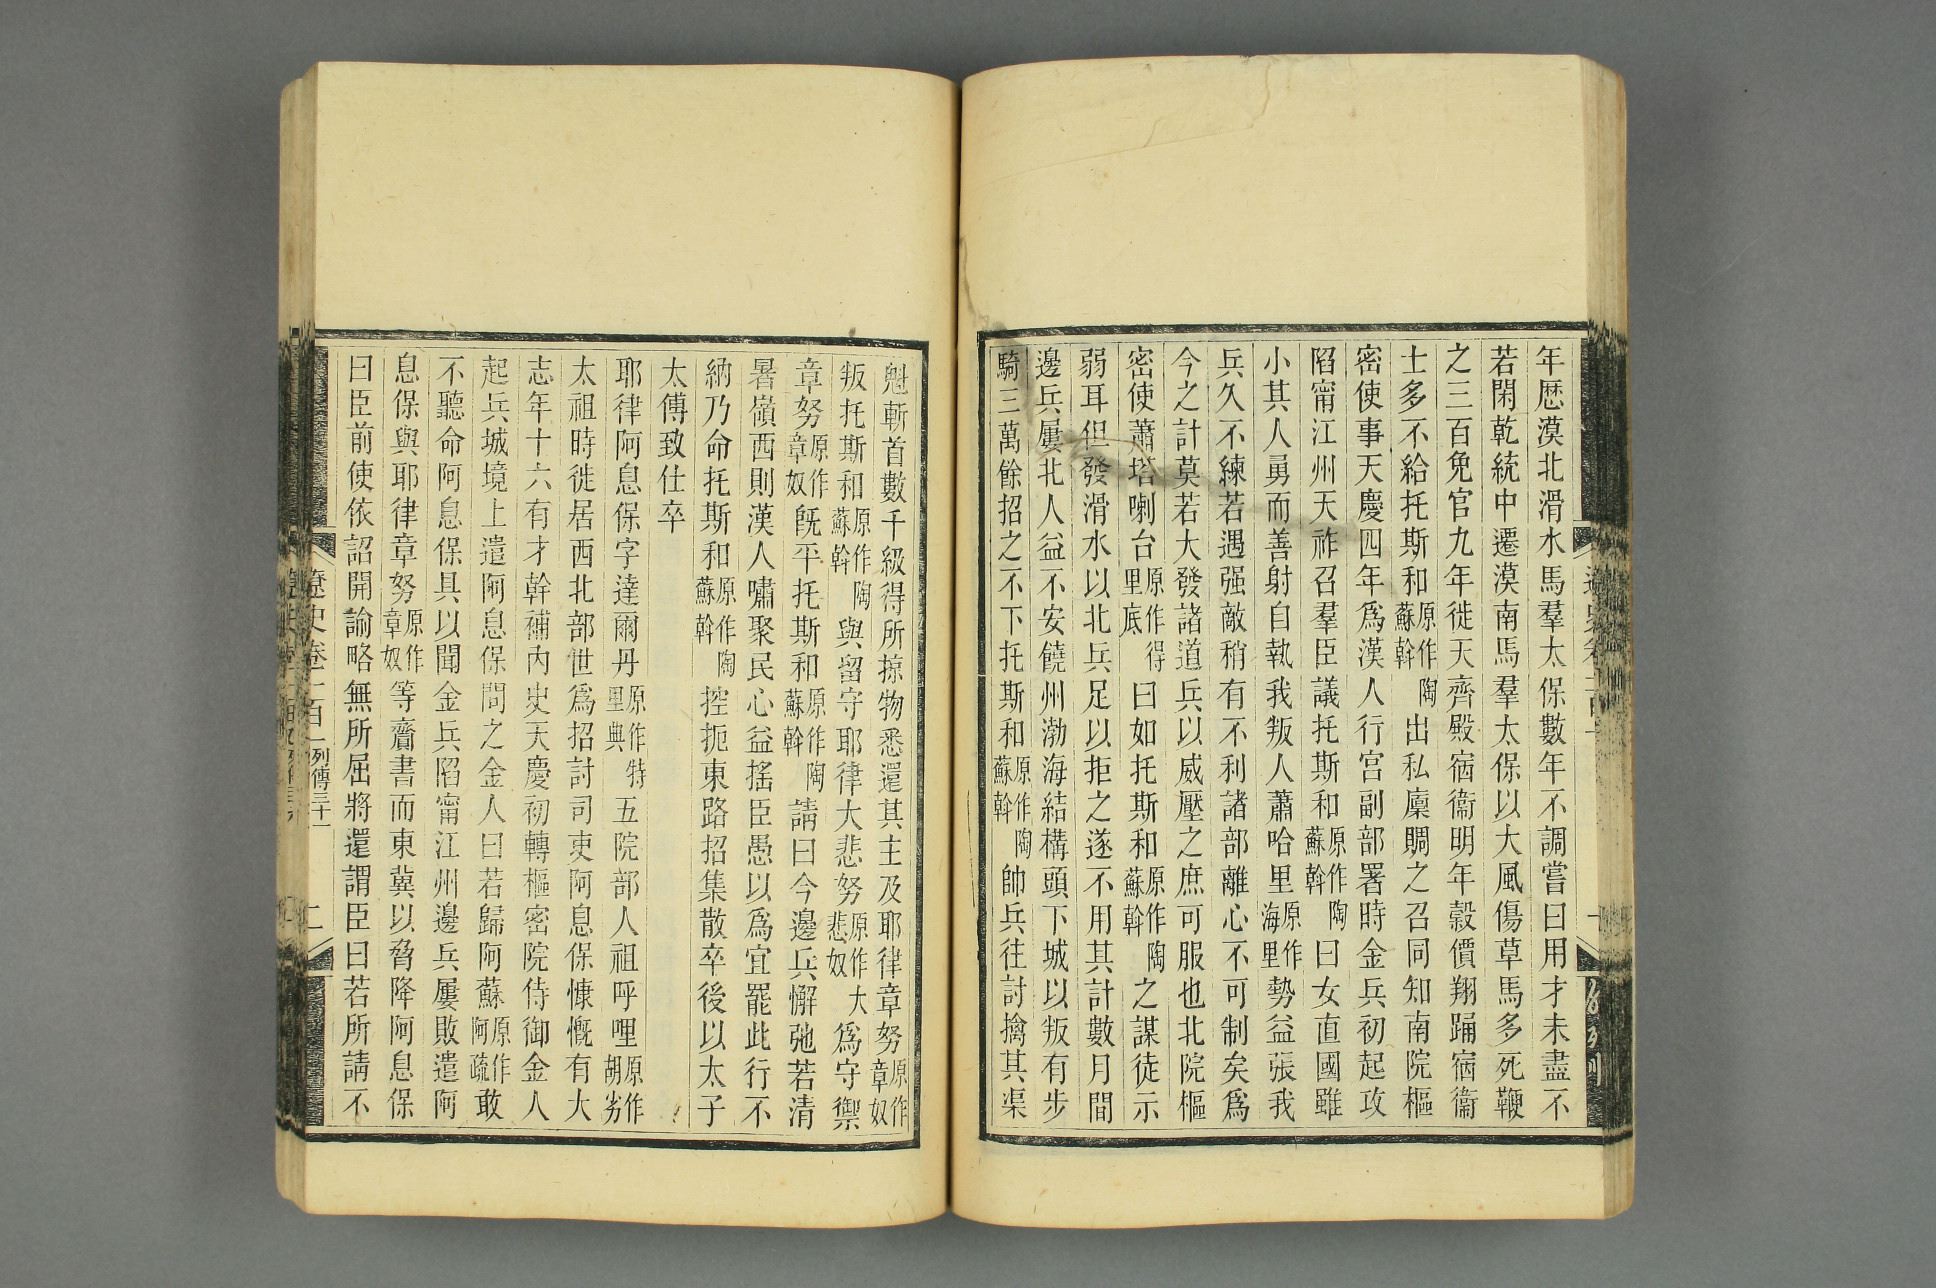 年歴漠北滑水馬羣太保數年不調嘗曰用才未盡不
若閑乾統中遷漠南馬羣太保以大風傷草馬多死鞭
之三百免官九年徙天齊殿宿衞明年穀價翔踊宿衞
士多不給托斯和原作陶蘇斡出私廩賙之召同知南院樞
密使事天慶四年爲漢人行宮副部署時金兵初起攻
陷甯江州天祚召羣臣議托斯和原作陶蘇斡曰女直國雖
小其人勇而善射自執我叛人蕭哈里原作海里勢益張我
兵久不練若遇强敵稍有不利諸部離心不可制矣爲
今之計莫若大發諸道兵以威壓之庶可服也北院樞
密使蕭塔喇台原作得里底曰如托斯和原作陶蘇斡之謀徒示
弱耳但發滑水以北兵足以拒之遂不用其計數月間
邊兵屢北人益不安饒州渤海結構頭下城以叛有步
騎三萬餘招之不下托斯和原作陶蘇斡帥兵往討擒其渠
魁斬首數千級得所掠物悉還其主及耶律章努原作章奴
叛托斯和原作陶蘇斡與留守耶律大悲努原作大悲奴爲守禦
章努原作章奴旣平托斯和原作陶蘇斡請曰今邊兵懈弛若清
暑嶺西則漢人嘯聚民心益搖臣愚以爲宜罷此行不
納乃命托斯和原作陶蘇斡控扼東路招集散卒後以太子
太傅致仕卒
耶律阿息保字達爾丹原作特里典五院部人祖呼哩原作胡劣
太祖時徙居西北部世爲招討司吏阿息保慷慨有大
志年十六有才幹補內史天慶初轉樞密院侍御金人
起兵城境上遣阿息保問之金人曰若歸阿蘇原作阿疏敢
不聽命阿息保具以聞金兵陷甯江州邊兵屢敗遣阿
息保與耶律章努原作章奴等齎書而東冀以脅降阿息保
曰臣前使依詔開諭略無所屈將還謂臣曰若所請不
遼史卷一百一 列傳三十一 二